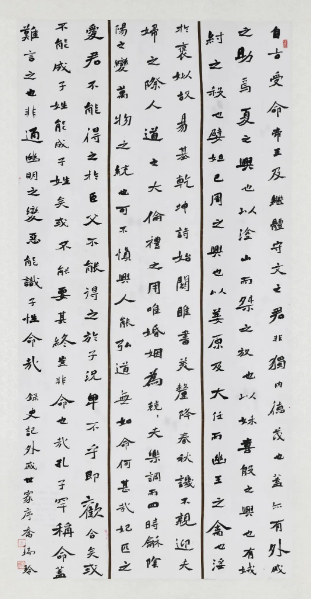 自古受命帝王及繼體守文之君非獨內德茂也蓋亦有外戚
之助焉夏之興也以塗山而桀之放也以妹喜殷之興也有娀
紂之殺也嬖妲己周之興也以姜原及大任而幽王之禽也淫
於褒姒故易基乾坤詩始關雎書美釐降春秋譏不親迎夫
婦之際人道之大倫禮之用唯婚姻為夫樂調而四時龢陰
陽之變萬物之統也可不慎與人能弘道無如命何甚哉妃匹之
愛君不能得之於臣父不能得之於子況卑不乎即歡合矣或
不能成子姓能成子姓矣或不能要其終豈非命也哉孔子罕稱命蓋
難言之也非通幽明之變惡能識乎性命哉 錄史記外戚世家序